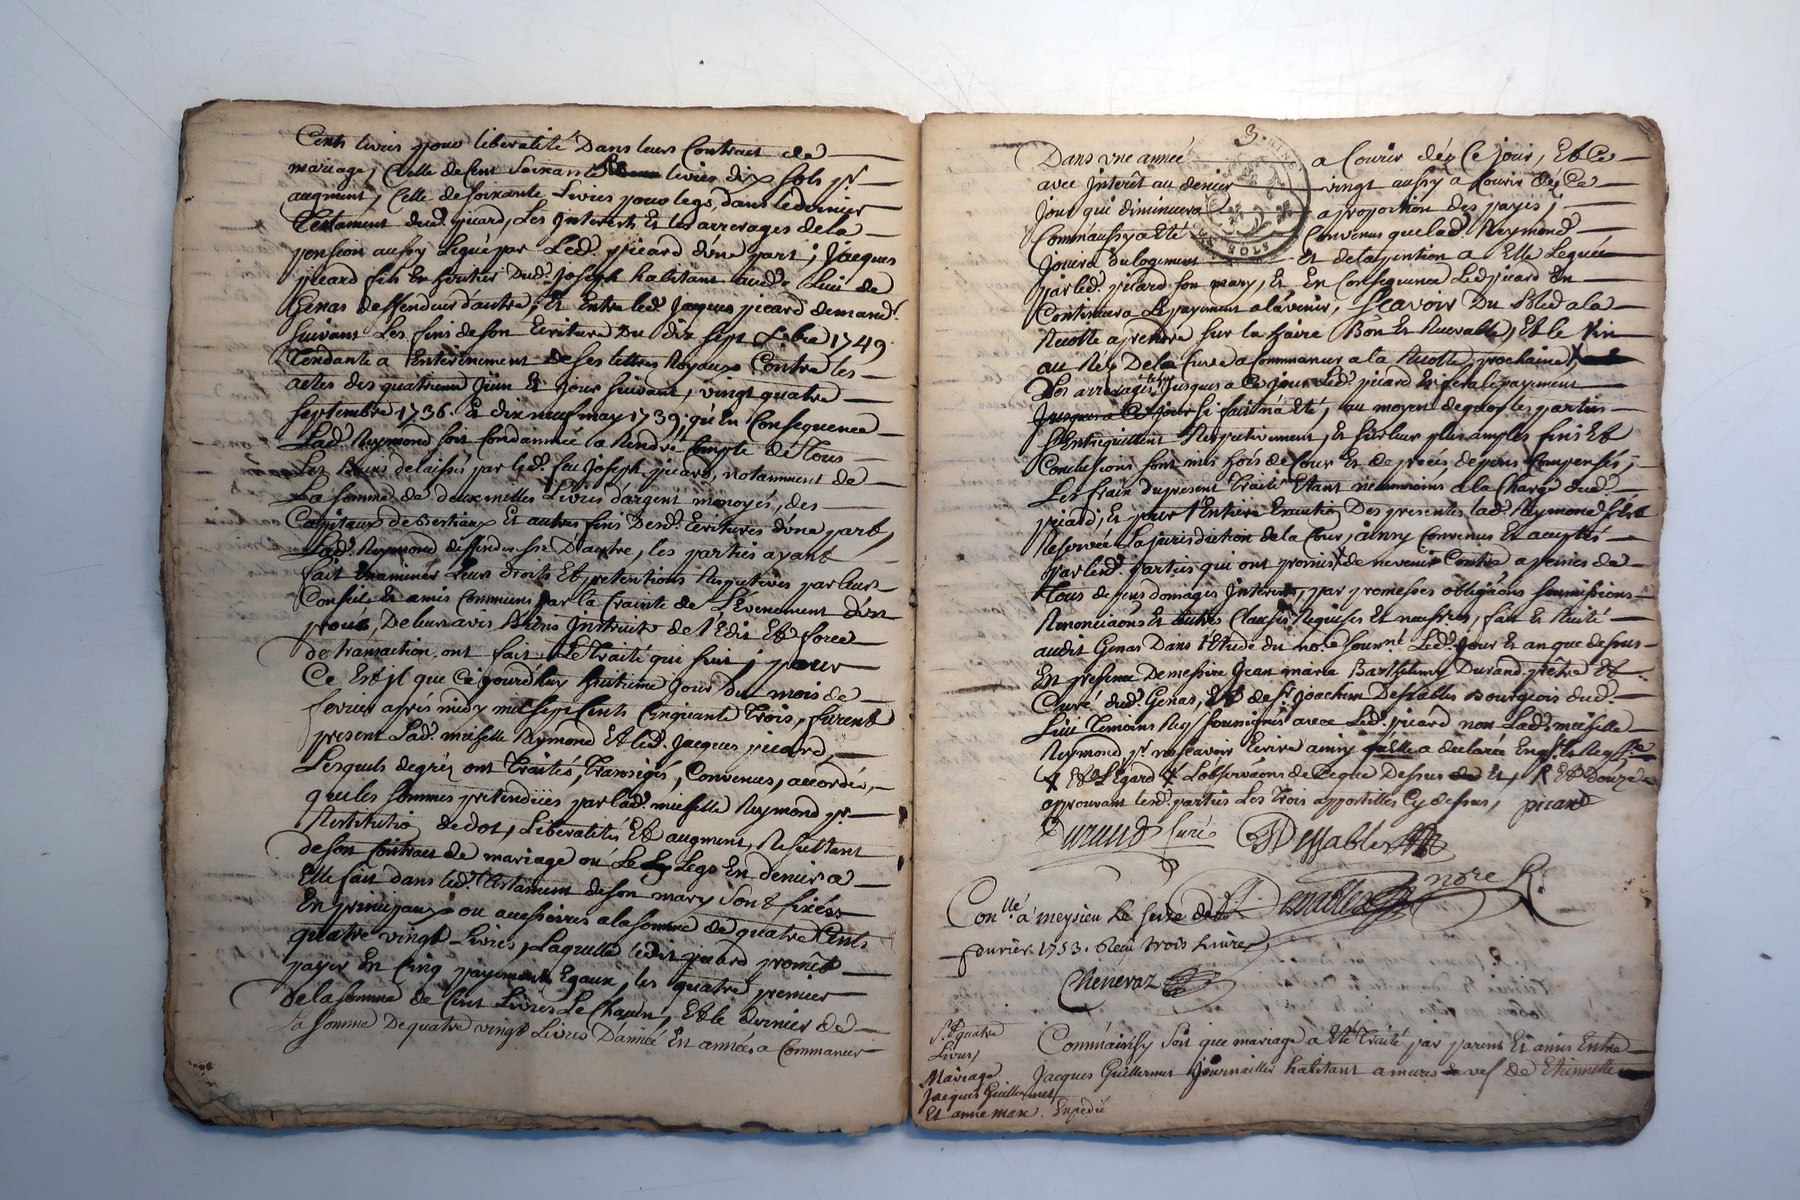 Cents livres pour liberalité Dans leurs Contract de
mariage, Celle de Cent Soixante livres dix sols pr.
augment, Celle de soixante Livres pour legs, dans le dernier
Testament dud. picard, Les Interests et les arrerages de la
pension aussy Legué par Led. picard d'une part; Jacques
picard fils et heritier Dud. Joseph habitant aud. Lieu de
Genas deffendeur d'autre, Et Entre led. Jacques picard demand.
suivant Les fins de son Ecriture Du dix sept 1749.
Tendante a l'enterinement de ses lettres Royaux Contre les
actes des quatrieme Juin Et jour suivant, vingt quatre
septembre 1736. Et dix neuf may 1739; qu'en Consequence
Lad. Reymond soit Condamnée la Rendre Compte de Tous
Les Biens delaissés par led. feu Joseph picard, notamment de
La somme de deux milles Livres d'argent monoyés, des
Capitaux de Bestiaux Et autres fins Desd. Ecritures d'une part,
Lad. Reymond deffenderesse D'autre, les parties ayant
fait Examiner Leurs droits Et pretentions Respectives par leurs
Conseils et amis Communs par la Crainte de L'Evenement d'un
De leurs avis Biens Instruits de l'Edit Et force
de transaction, ont fait Le Traité qui suit; pour
Ce Est il que Ce jourd'huy huitieme Jour du mois de
fevrier aprés midy mil sept Cents Cinquante Trois, furent
present Lad. Reymond Et led. Jacques picard
Lesquels de gréz ont Traités, Transigés, Convenus, accordés,
que les sommes pretendües par lad. Reymond pr.
Restitution de dot, Liberalités Et augment, Resultant
de son Contract de mariage ou Le Legs En denier a
Elle fait dans led. Testament de son mary Sont fixées
En principaux ou accessoires a la somme de quatre Cents
quatre vingt Livres, Laquelle ledit picard promet
payer En Cinq payements Egaux, les quatre premier
De la somme de Cent Livres Le Chacun, Et le dernier de
la somme De quatre vingt Livres D'année En années a Commancer
3.
Dans une année a Courir dés Ce jour, Et Ce
avec Interêt au denier vingt aussy a Courir dés Ce
jour qui diminuera a proportion des payes;
Comm'aussy a Eté Convenus que lad. Reymond
Jouira du logement Et de la pention a Elle Leguée
par led. picard son mary, Et En Consequence Led. picard En
Continuera Le payement a l'avenir, Scavoir Du Bled a la
Recolte a prendre sur la haire Bon Et Recevable, Et le Vin
au Rez De la Cuve a Commancer a la Recolte prochaine,
Les arrerages Jusques a Ce jour Led. picard En fera le payement
jour si fait n'a Eté, au moyen de quoy les parties
S'Entrequittent Respectivement, Et sur leur plus amples fins Et
Conclusions sont mis hors de Cour Et de procés depens Compensés;
Les fraix du present Traité Etant neanmoins a la Charge dud.
picard, Et pour l'Entiere Execution Des presentes lad. Reymond s'est
Reservée la jurisdiction de la Cour, ainsy Convenus Et acceptés
par lesd. parties qui ont promis de ne venir Contre a peines de
Tous depens domages Interets, par promesses obligaons soumissions
Renonciaons Et autres Clauses Requises Et necessres, fait Et Recité
audit Genas Dans l'Etude du nore. soussné. Led. Jour Et an que dessus
En presence De messire Jean marie Barthelemy Durand prêtre Et
Curé dud. Genas, Et de sr. Joachim Dessables Bourgeois dud.
Lieu Temoins Req. soussignés avec Led. picard non Lad.
Reymond pr. ne scavoir Ecrire ainsy qu'Elle a declarée Enq. Et Req.
Et L'Egard L'observaons de Ceque Dessus Et, Et Douze
approuvant lesd. parties Les Trois appostilles Cy dessus, picard
Durand Curé Dessables
Desssables nore R.
Conllé a meysieu Le
fevrier 1753. Reçu trois livres
Chenevaz
Et quatre
Livres,
Mariage
Jacques Guillermet
Et anne max Expedié
Comm'ainsy Soit que mariage a Eté Traité par parent Et amis Entre
Jacques Guillermet Journaillier habitant a meures vef de Etiennette